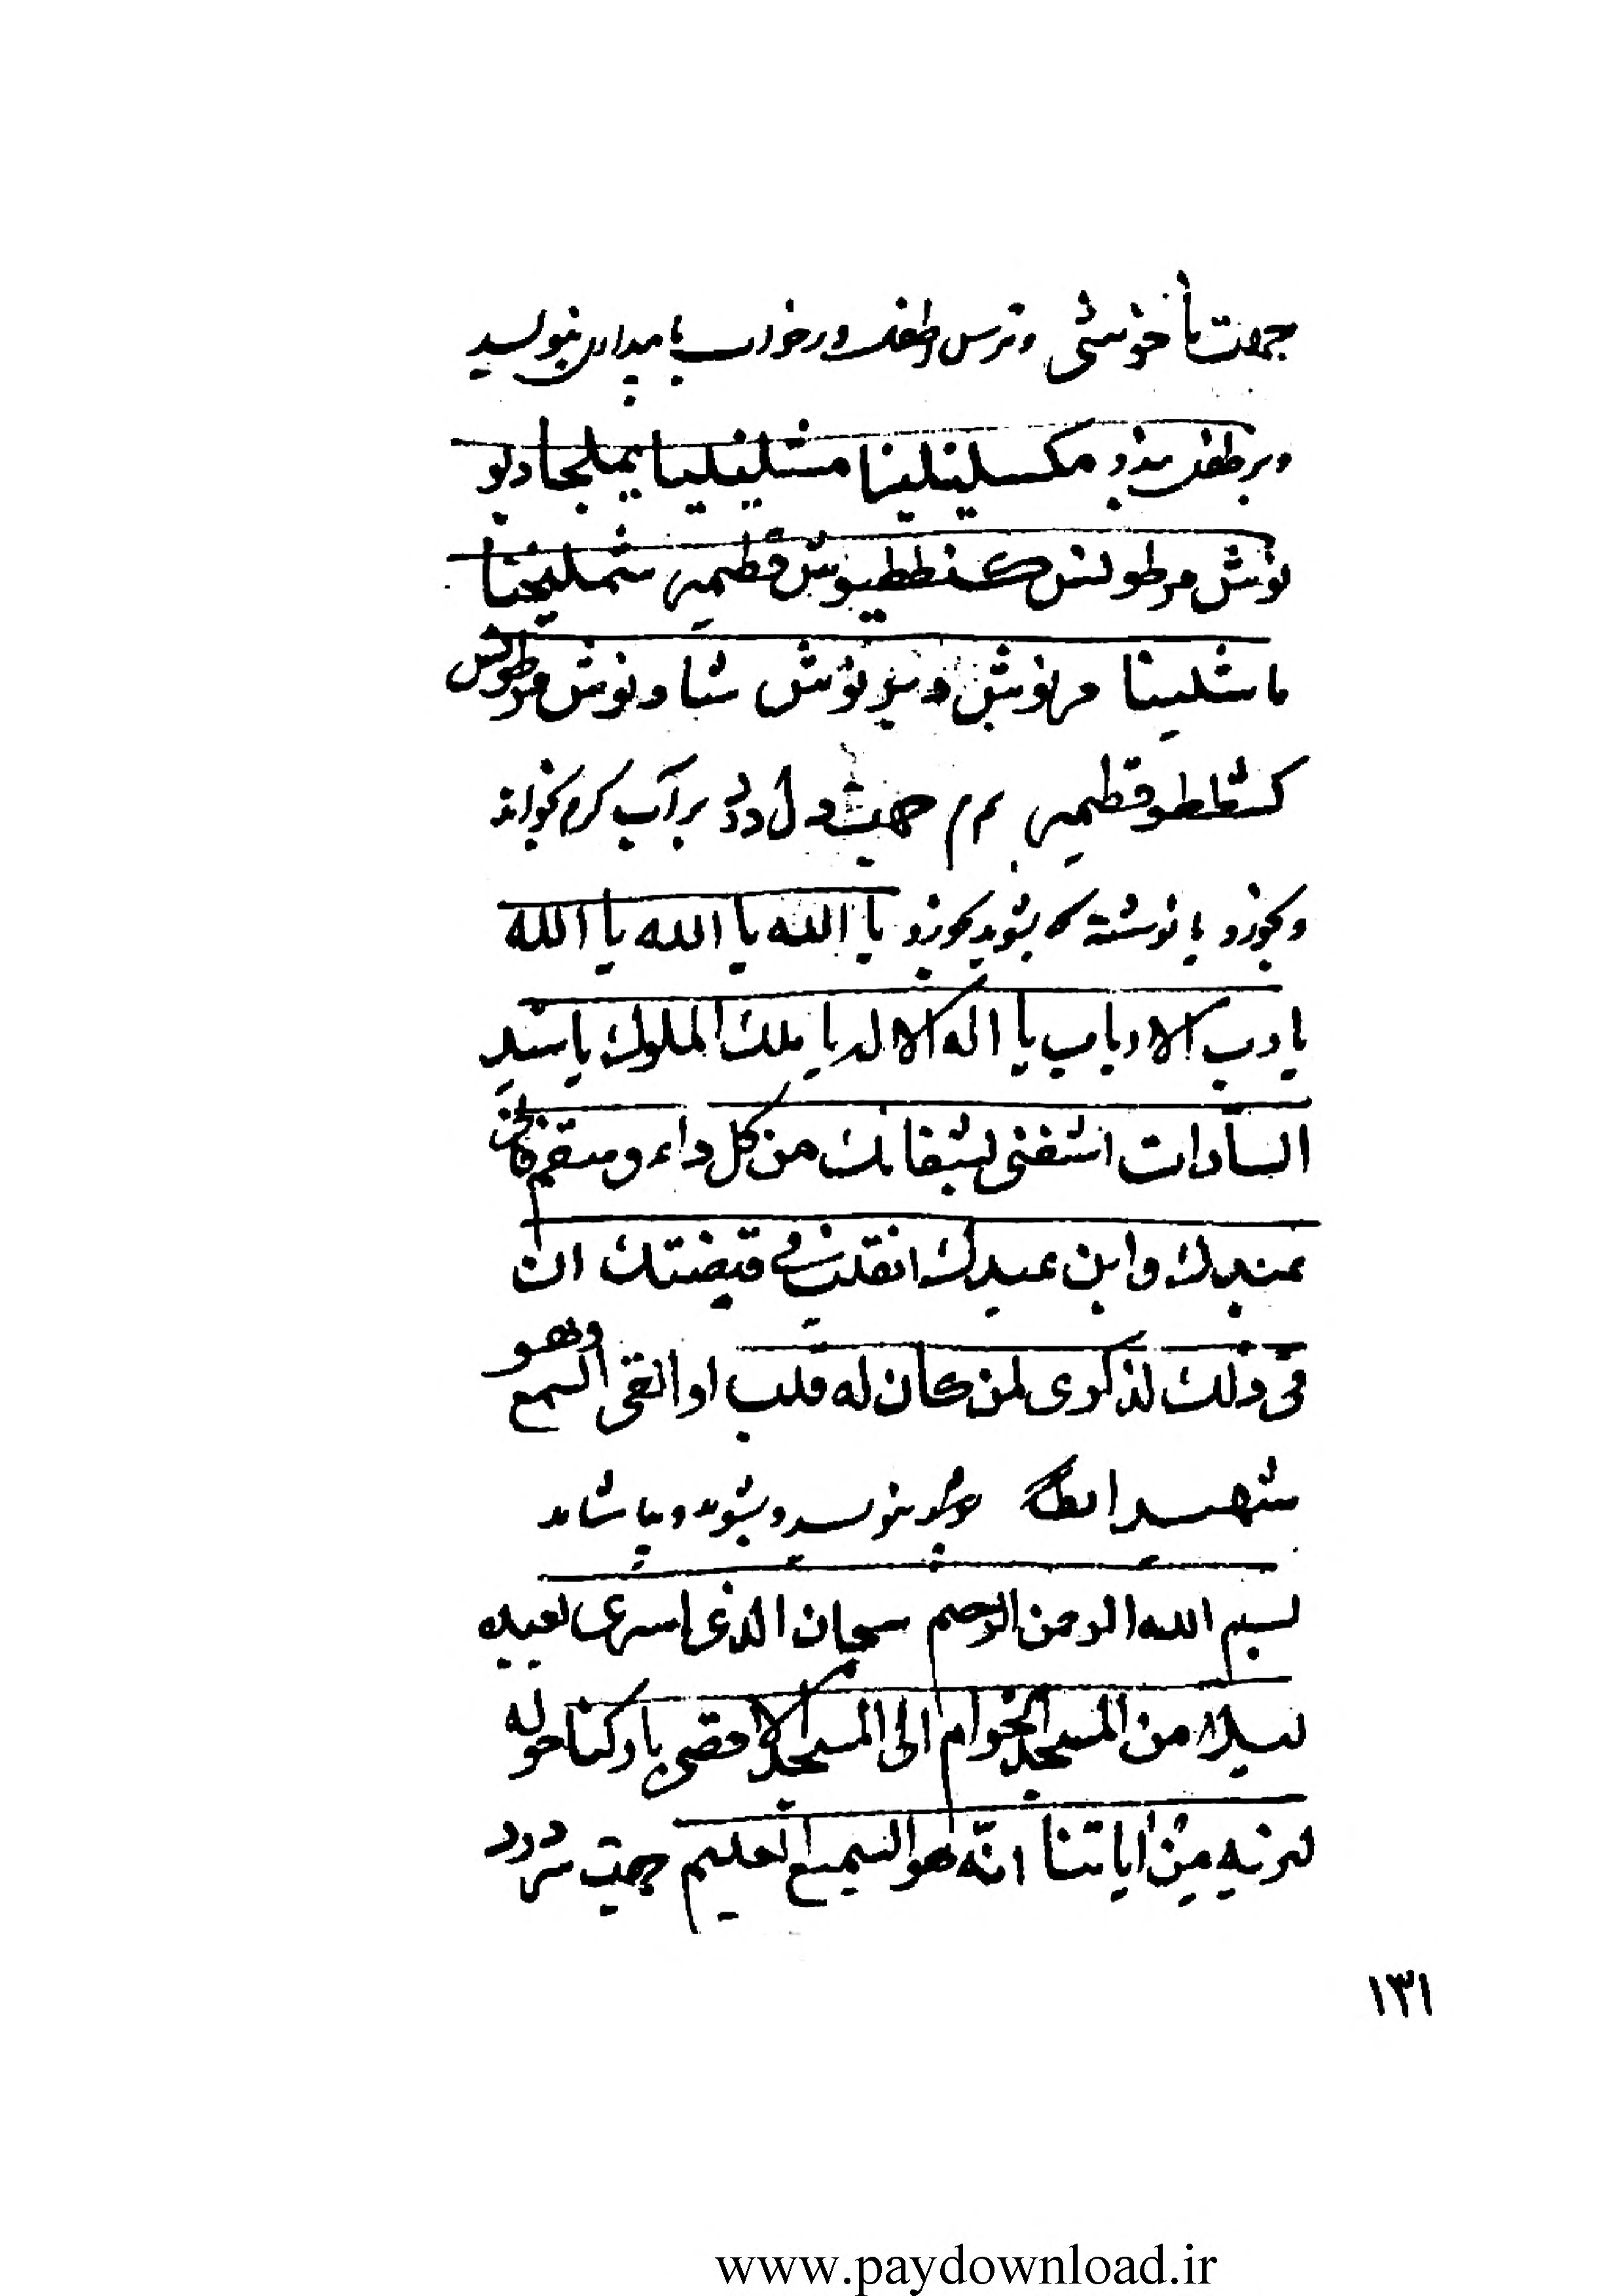 جهت ناخوشی و ترس طفل در خواب یا بیداری بنویسد
و بر طفل بندد مکسلینلینا مشلیلینیا یملیخا دبو
نوش مرطولش کنططیوش قطمیر شملیخنا
ماشلینا مرنوش دبرنوش شاونوش مرطولش
کشفاطط قطمیر م م جهت دل درد بر آب گرم بخواند
و بخورد یا نوشته که بشوید بخورد یا الله یا الله یا الله
یا رب الارباب یا اله الاله یا ملک الملوک یا سید
السادات اشفنی بشفائک من کل داء و سقم فانی
عبدک وابن عبدک انقلب فی قبضتک ان
فی ذلک لذکری لمن کان له قلب او القی السمع وهو
شهید ایضا بنویسد و بشوید و بیاشامد
بسم الله الرحمن الرحیم سبحان الذی اسری بعبده
لیلا من المسجد الحرام الی المسجد الاقصی بارکنا حوله
لنریه من ایاتنا انّه هو السمیع العلیم جهت سردرد
۱۳۱
www.paydownload.ir